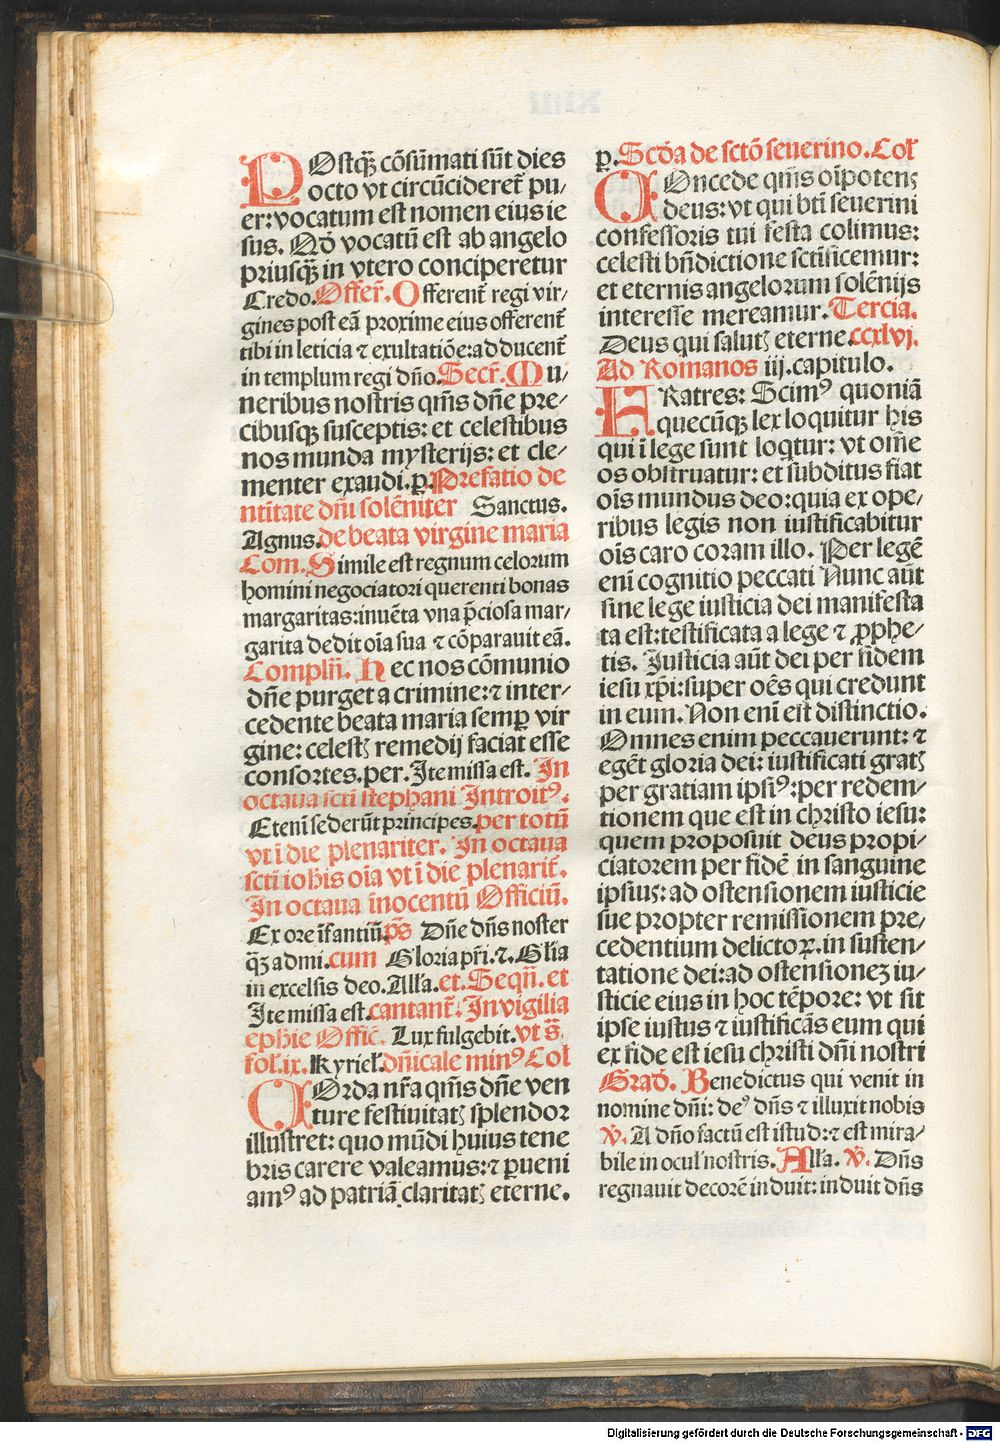 POstqȝ cōsūmati sūt dies
octo vt circūcideret̄ pu⸗
er: vocatum est nomen eius ie
sus. Qd̄ vocatū est ab angelo
priusqȝ in vtero conciperetur
Credo. Offer̄. Offerent̄ regi vir⸗
gines post eā proxime eius offerent̄
tibi in leticia ⁊ exultatiōe: adducent̄
in templum regi dn̄o. Secr̄. Mu⸗
neribus nostris qm̄s dn̄e pre⸗
cibusqȝ susceptis: et celestibus
nos munda mysterijs: et cle⸗
menter exaudi. ꝑ. Prefatio de
ntītate dn̄i solēniter Sanctus.
Agnus. de beata virgine maria
Com. Simile est regnum celorum
homini negociatori querenti bonas
margaritas: inuēta vna p̄ciosa mar⸗
garita dedit oīa sua ⁊ cōparauit eā.
Compln̄. Hec nos cōmunio
dn̄e purget a crimine: ⁊ inter⸗
cedente beata maria semꝑ vir
gine: celestꝭ remedij faciat esse
consortes. per. Ite missa est. In
octaua scti stephani Introitꝰ.
Etenī sederūt principes. per totū
vt ī die plenariter. In octaua
scti iohīs oīa vt ī die plenarit̄.
In octaua īnocentū Officiū.
Ex ore īfantiū. ps̄ Dn̄e dn̄s noster
qȝ admi. cum Gloria pr̄i. ⁊. Glīa
in excelsis deo. Alla. et. Seqn̄. et
Ite missa est. cantant̄. In vigilia
ephie Offic̄. Lux fulgebit. vt s̄
fol. ix. Kyriel. dn̄icale minꝰ Col
COrda nr̄a qm̄s dn̄e ven
ture festiuitatꝭ splendor
illustret: quo mūdi huius tene
bris carere valeamus: ⁊ ꝑueni
amꝰ ad patriā claritatꝭ eterne.
ꝑ. Scd̄a de sctō seuerino. Col
COncede qm̄s oīpotens
deus: vt qui btī seuerini
confessoris tui festa colimus:
celesti bn̄dictione sctīficemur:
et eternis angelorum solēnijs
interesse mereamur. Tercia.
Deus qui salutꝭ eterne. ccxlvj.
Ad Romanos iij. capitulo.
FRatres: Scimꝰ quoniā
quecūqȝ lex loquitur his
qui ī lege sunt loqtur: vt om̄e
os obstruatur: et subditus fiat
oīs mundus deo: quia ex ope⸗
ribus legis non iustificabitur
oīs caro coram illo. Per legē
enī cognitio peccati Nunc aūt
sine lege iusticia dei manifesta
ta est: testificata a lege ⁊ ꝓphe⸗
tis. Iusticia aūt dei per fidem
iesu xp̄i: super oēs qui credunt
in eum. Non enī est distinctio.
Omnes enim peccauerunt: ⁊
egēt gloria dei: iustificati gratꝭ
per gratiam ipsiꝰ: per redem⸗
tionem que est in christo iesu:
quem proposuit deus propi⸗
ciatorem per fidē in sanguine
ipsius: ad ostensionem iusticie
sue propter remissionem pre⸗
cedentium delictoꝝ. in susten⸗
tatione dei: ad ostensionez iu⸗
sticie eius in hoc tēpore: vt sit
ipse iustus ⁊ iustificās eum qui
ex fide est iesu christi dn̄i nostri
Grad̄. Benedictus qui venit in
nomine dn̄i: deꝰ dn̄s ⁊ illuxit nobis
v̄. A dn̄o factū est istud: ⁊ est mira⸗
bile in ocul' nostris. Alla. v̄. Dn̄s
regnauit decorē induit: induit dn̄s
Digitalisierung gefördert durch die Deutsche Forschungsgemeinschaft - DFG